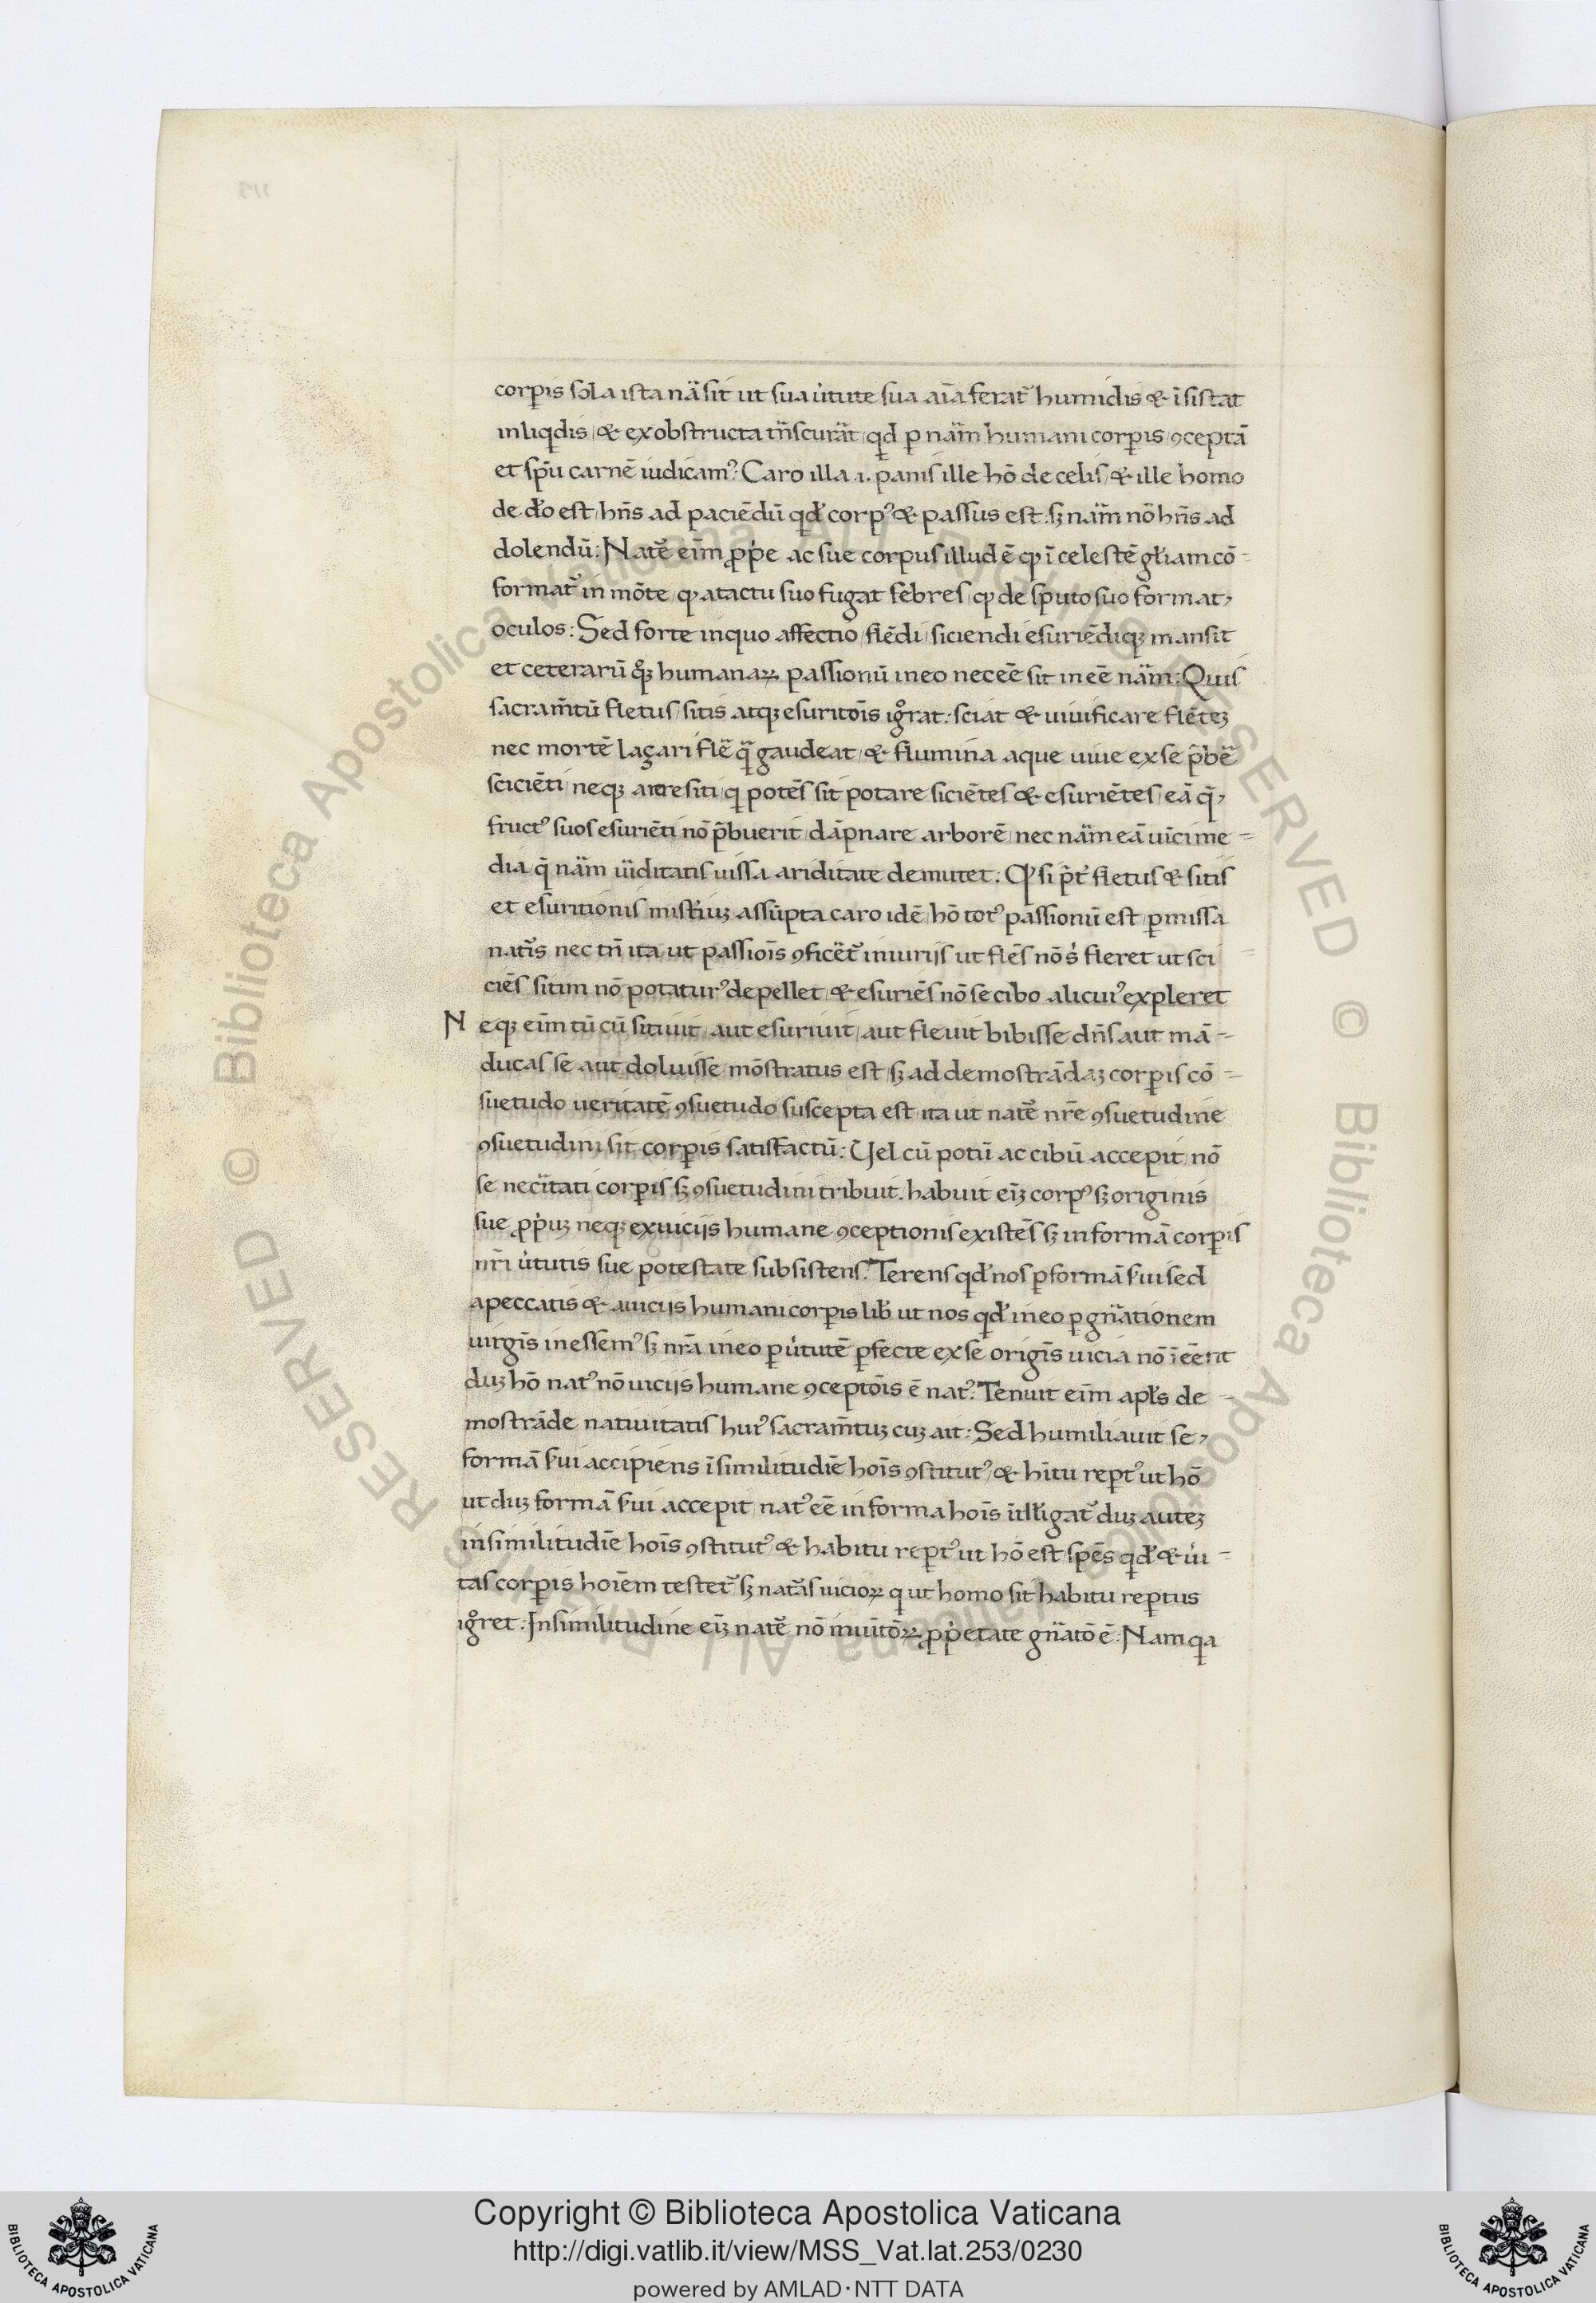 corꝑis sola ista nã sit ut sua ùtute sua aĩa ferat᷑ humidis & ĩsistat
in liq̇dis / & exobstructa tñscurãt / qd ꝑ nãm humani corꝑis / ꝯceptã
et spũ carnẽ iudicamꝰ: Caro illa .i. panis ille hõ de celis / & ille homo
de dõ est / hñs ad paciẽdũ qđ corpꝰ & passus est: sꝫ nãm nõ hñs ad
dolendũ: Natẽ eĩm ꝓpe ac sue corpus illud ẽ qꝫ ĩ celestẽ głiam cõ-
format᷑ in mõte / qꝫ atactu suo fugat febres / qꝫ de sputo suo format,
oculos: Sed forte in quo affectio flẽdi / siciendi esuriẽdiqꝫ mansit
et ceterarũ qꝫ humanaꝝ passionũ in eo neceẽ sit in eẽ nãm: Quis
sacram̃tũ fletus / sitis atqꝫ esuritõis igͦrat: sciat & uiuificare flẽteꝫ
nec mortẽ laçari flẽ q̃ gaudeat / & flumina aque uiue ex se p̃bẽ
sciciẽti / neqꝫ arere siti / qi potẽs sit potare siciẽtes & esuriẽtes / eã q̃,
fructꝰ suos esuriẽti nõ p̃buerit / dãpnare arborẽ / nec nãm eã uĩci me-
dia / q̃ nãm üiditatis iussa ariditate demutet. Qꝫ si p̃t᷑ fletus & sitis
et esuritionis mist̾iuꝫ assũpta caro idẽ / hõ totꝰ passionũ est / ꝑmissa
nat᷑is nec tñ ita ut passiõis ꝯficẽt᷑ iniurijs ut flẽs nõ s̾ fleret ut sci
ciẽs sitim nõ potaturꝰ depellet / & esuriẽs nõ se cibo alicuiꝰ expleret
Neqꝫ eĩm tũ cũ sitiuit / aut esuriuit / aut fleuit bibisse dñs aut mã-
ducasse aut doluisse mõstratus est / sꝫ ad demostrãdaꝫ corꝑis cõ-
suetudo ueritatẽ ꝯsuetudo suscepta est ita ut natẽ nr̃e ꝯsuetudine
ꝯsuetudini sit corꝑis satisfactũ: Vel cũ potũ ac cibũ accepit / nõ
se necïtati corꝑis sꝫ ꝯsuetudini tribuit. habuit eĩꝫ corpꝰ sꝫ originis
sue ꝓp̾iuꝫ neqꝫ ex uicijs humane ꝯceptionis existẽs sꝫ in formã corꝑis
nr̃i ùtutis sue potestate subsistens. Terens qđ nos ꝑ formã s̾ui sed
a peccatis & auicijs humani corꝑis lib̾ ut nos qđ in eo ꝑ gñationem
uirgĩs inessemꝰ sꝫ nr̃a in eo ꝑ ùtutẽ ꝑfecte ex se origĩs uicia nõ ĩ eẽnt
duꝫ hõ natꝰ nõ uicijs humane ꝯceptõis ẽ natꝰ: Tenuit eĩm apl̃s de-
mostrãde natiuitatis huiꝰ sacram̃tuꝫ cuꝫ ait: Sed humiliauit se,
formã s̾ui accipiens ĩ similitudĩe hoĩs ꝯstitutꝰ / & hĩtu reꝑtꝰ ut hõ
ut duꝫ formã s̾ui accepit / natꝰ eẽ in forma hoĩs ĩtlligat᷑ duꝫ auteꝫ
in similitudĩe hoĩs ꝯstitutꝰ / & habitu reꝑtꝰ ut hõ est spẽs qđ & ùi-
tas corꝑis hoĩem testet᷑ sꝫ nat᷑as uicioꝝ qi ut homo sit habitu reꝑtus
igͦret: In similitudine eĩꝫ natẽ nõ inuĩtõꝝ ꝓp̾etate gñatõ ẽ: Nam qa
Copyright © Biblioteca Apostolica Vaticana
http://digi.vatlib.it/view/MSS_Vat.lat.253/0230
powered by AMLAD·NTT DATA